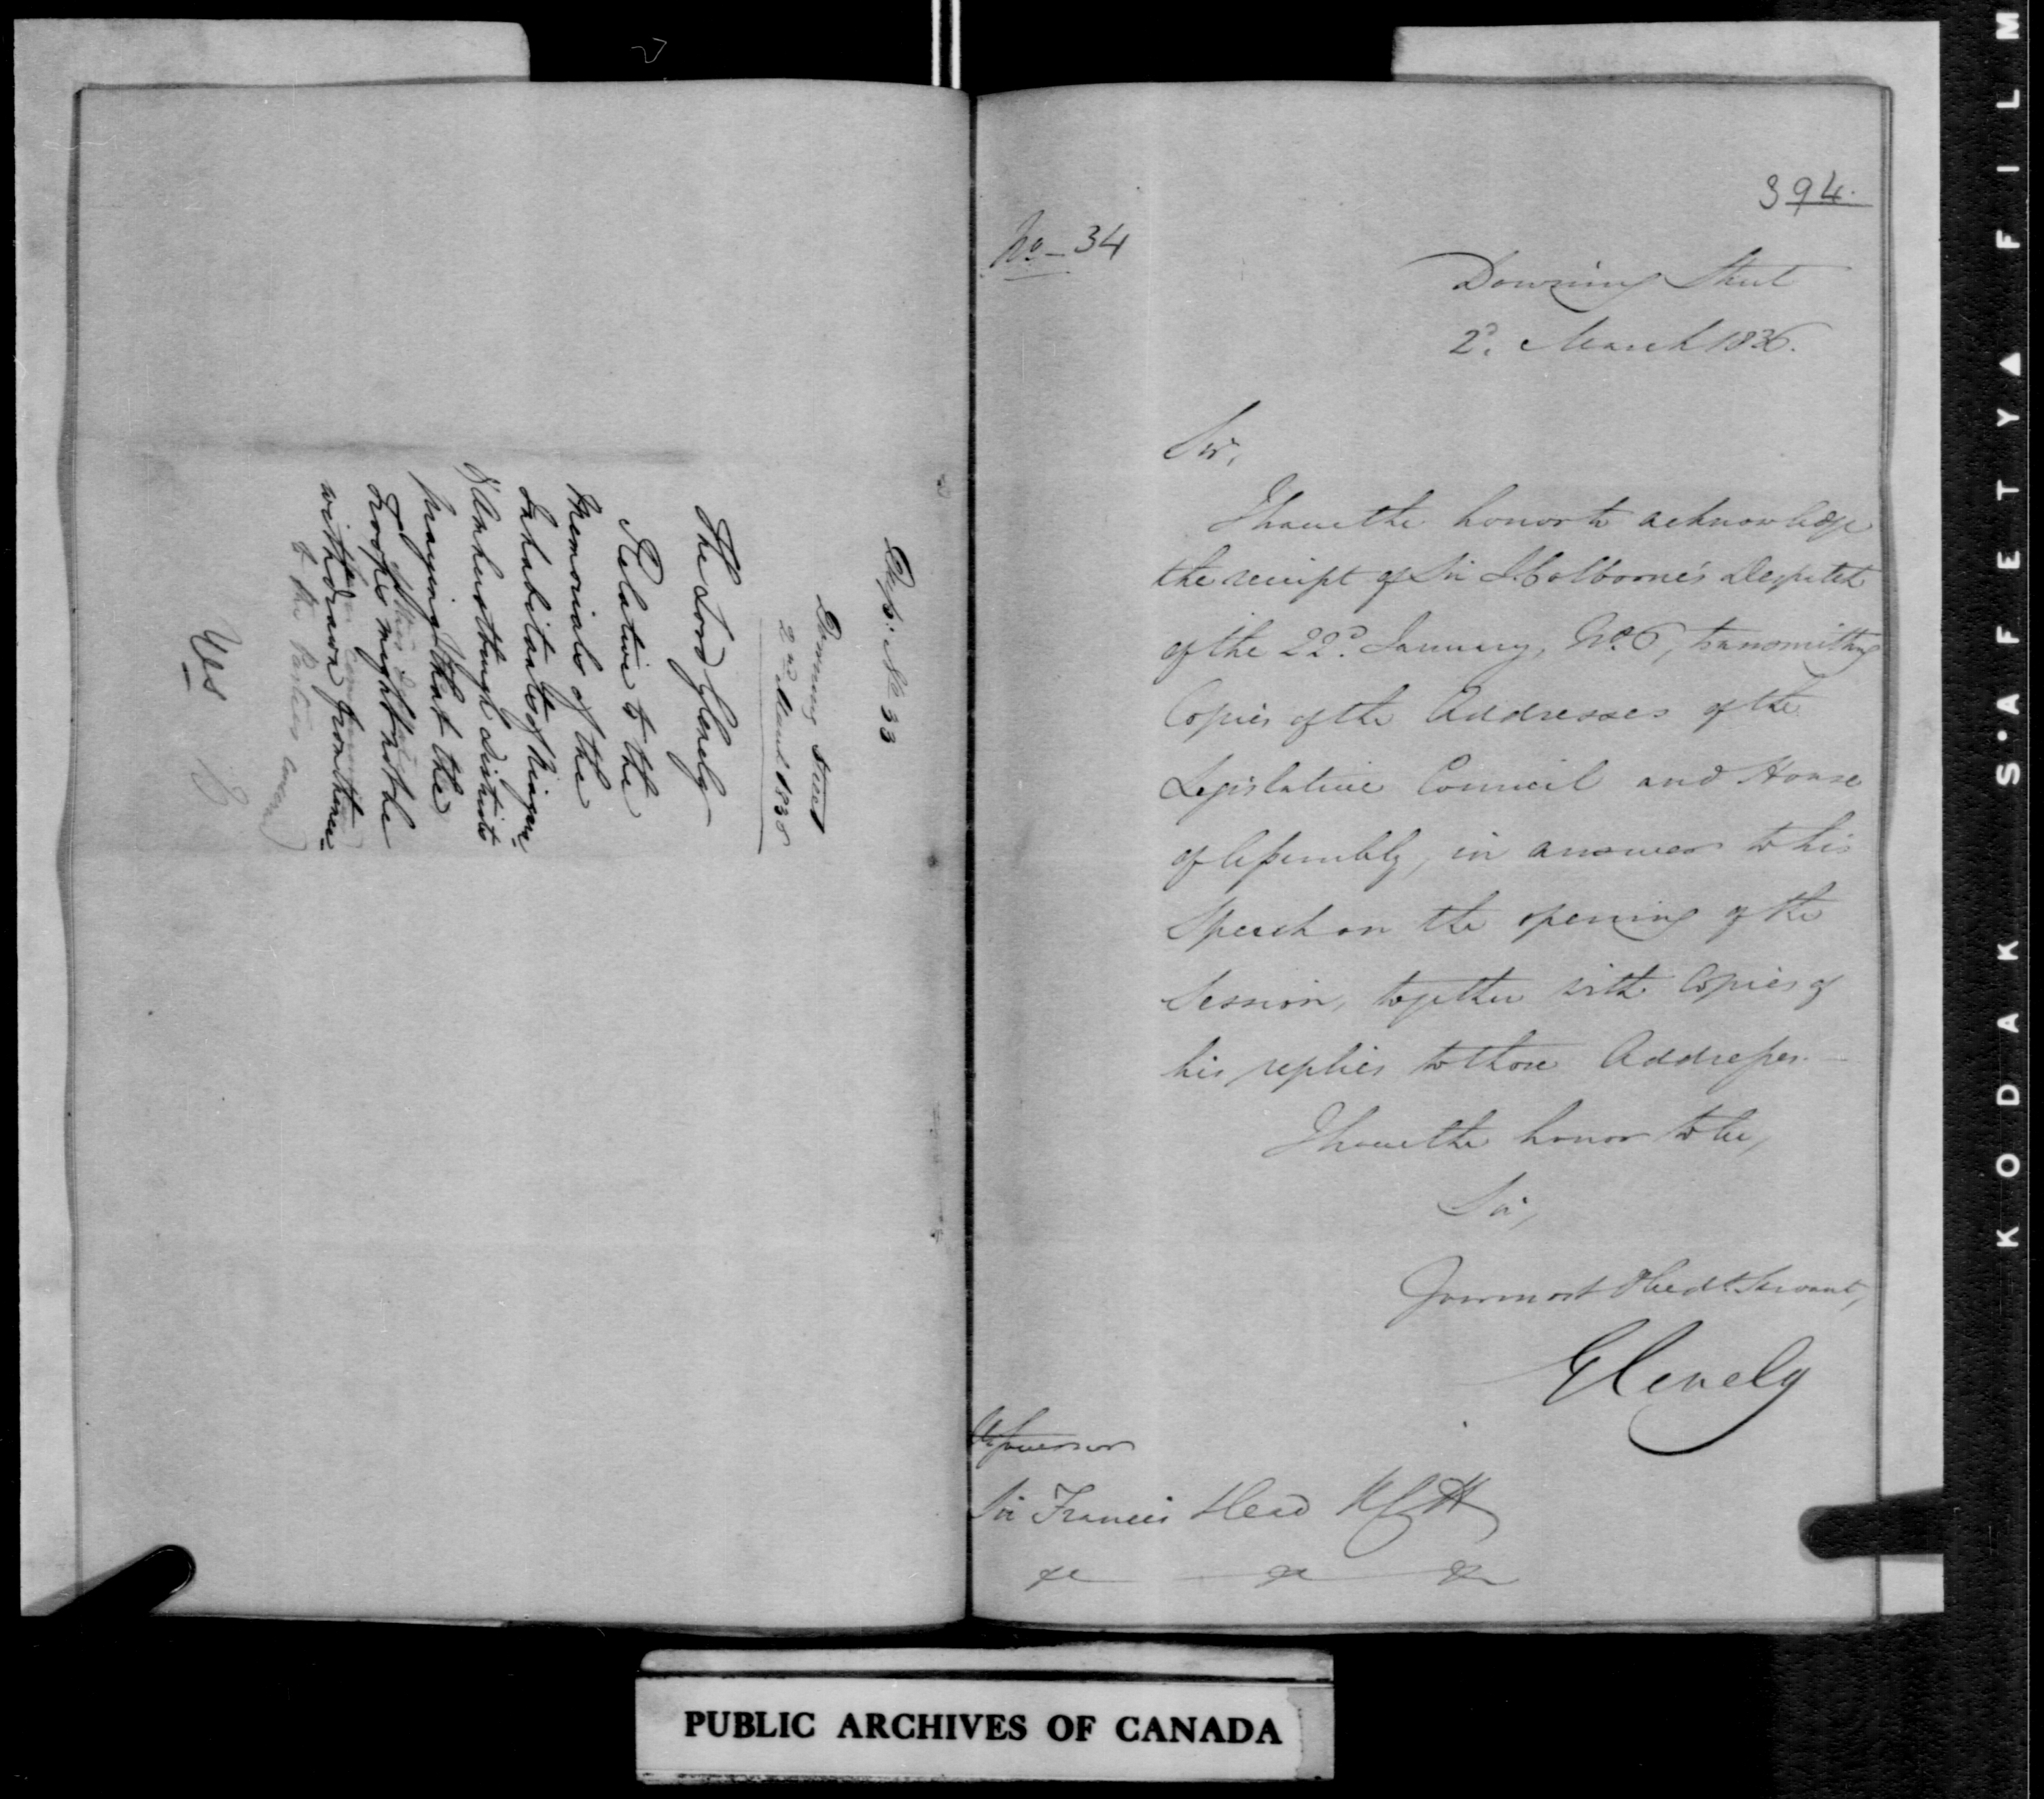 Desp: No 33
Downing Street
2nd March 1836
The Lord Glenelg
Relative to the
Memorials of the
Inhabitants of
& Amherstburgh districts
praying that the
Troops might not be
withdrawn from thence
to the Parties
394.
No - 34
Downing Street
2d. March 1836.
Sir,
I have the honor to acknowledge
the receipt of Sir J. Colborne's Despatch
of the 22d. January, No. 6, transmitting
Copies of the Addresses of the
Legislative Council and House
of Assembly, in answer to his
Speech on the opening of the
Session, together with Copies of
his replies to those Addresses. —
I have the honor to be,
Sir,
Your most Obedt. Servant,
Glenelg
Sir Francis Head KCH
&c &c &c
PUBLIC ARCHIVES OF CANADA
KODAK S·AFETY▲FILM